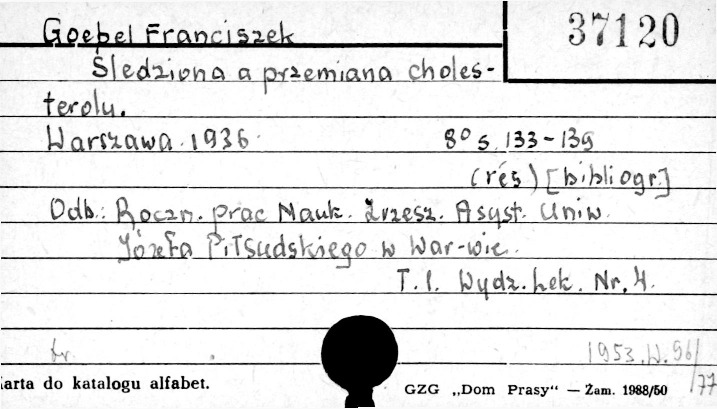 Goebel Franciszek
37120
Śledziona a przemiana choles-
terolu.
Warszawa 1936. 8° s. 133-139
(rés) [bibliogr.]
Odb.: Roczn. prac Nauk. Zrzesz. Asyst. Uniw.
Józefa Piłsudskiego w War-wie.
T. I. Wydz. Lek. Nr. 4.
1953.W.96/
/77
arta do katalogu alfabet.
GZG „Dom Prasy“ — Żam. 1988/50